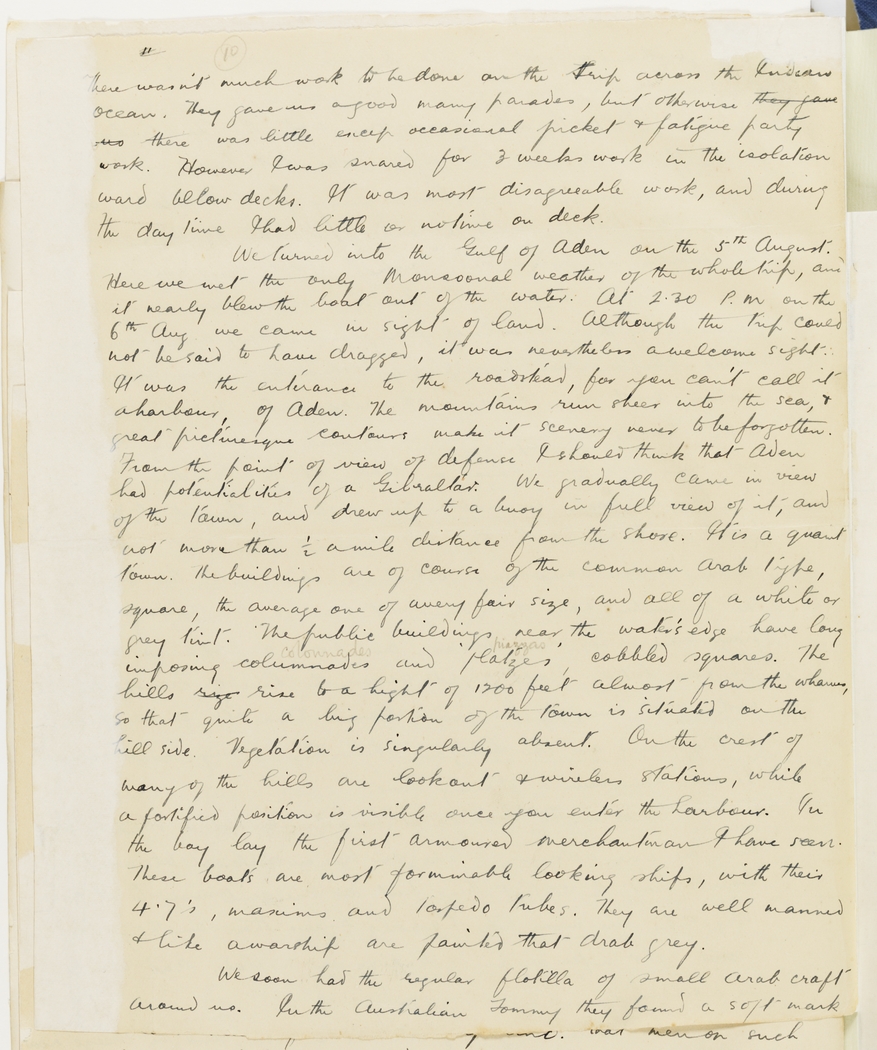 11
10
There wasn't much work to be done on the trip across the Indian
ocean. They gave us a good many parades, but otherwise they gave
us there was little excep occasional picket & fatigue party
work. However I was snared for 3 weeks work in the isolation
ward bellow decks. It was most disagreeable work, and during
the day time I had little or no time on deck.
We turned into the Gulf of Aden on the 5th August.
Here we met the only Monsoonal weather of the whole trip, and
it nearly blew the boat out of the water. At 2.30 P.M on the
6th Aug we came in sight of land. Although the trip could
not be said to have dragged, it was nevertheless a welcome sight.
It was the enterance to the roadstead, for you can't call it
a harbour, of Aden. The mountains run sheer into the sea, &
great picturesque contours make it scenery never to be forgotten.
From the point of view of defense I should think that Aden
had potentialities of a Gibraltar. We gradually came in view
of the town, and drew up to a buoy in full view of it, and
not more than ½ a mile distance from the shore. It is a quaint
town. The buildings are of course of the common Arab type,
square, the average one of a very fair size, and all of a white or
grey tint. The public buildings near the water's edge have long
colonnades piazzas
imposing columnades and 'Platzes', cobbled squares. The
hills rize rise to a hight of 1200 feet almost from the wharves,
so that quite a big portion of the town is situated on the
hill side. Vegetation is singularly absent. On the crest of
many of the hills are lookout & wireless stations, while
a fortified position is visible once you enter the harbour. In
the bay lay the first armoured merchantman I have seen.
These boats are most forminable looking ships, with their
4.7's, maxims and torpedo tubes. They are well manned
& like a warship are painted that drab grey.
We soon had the regular flotilla of small Arab craft
around us. In the Australian Tommy they found a soft mark
men on such